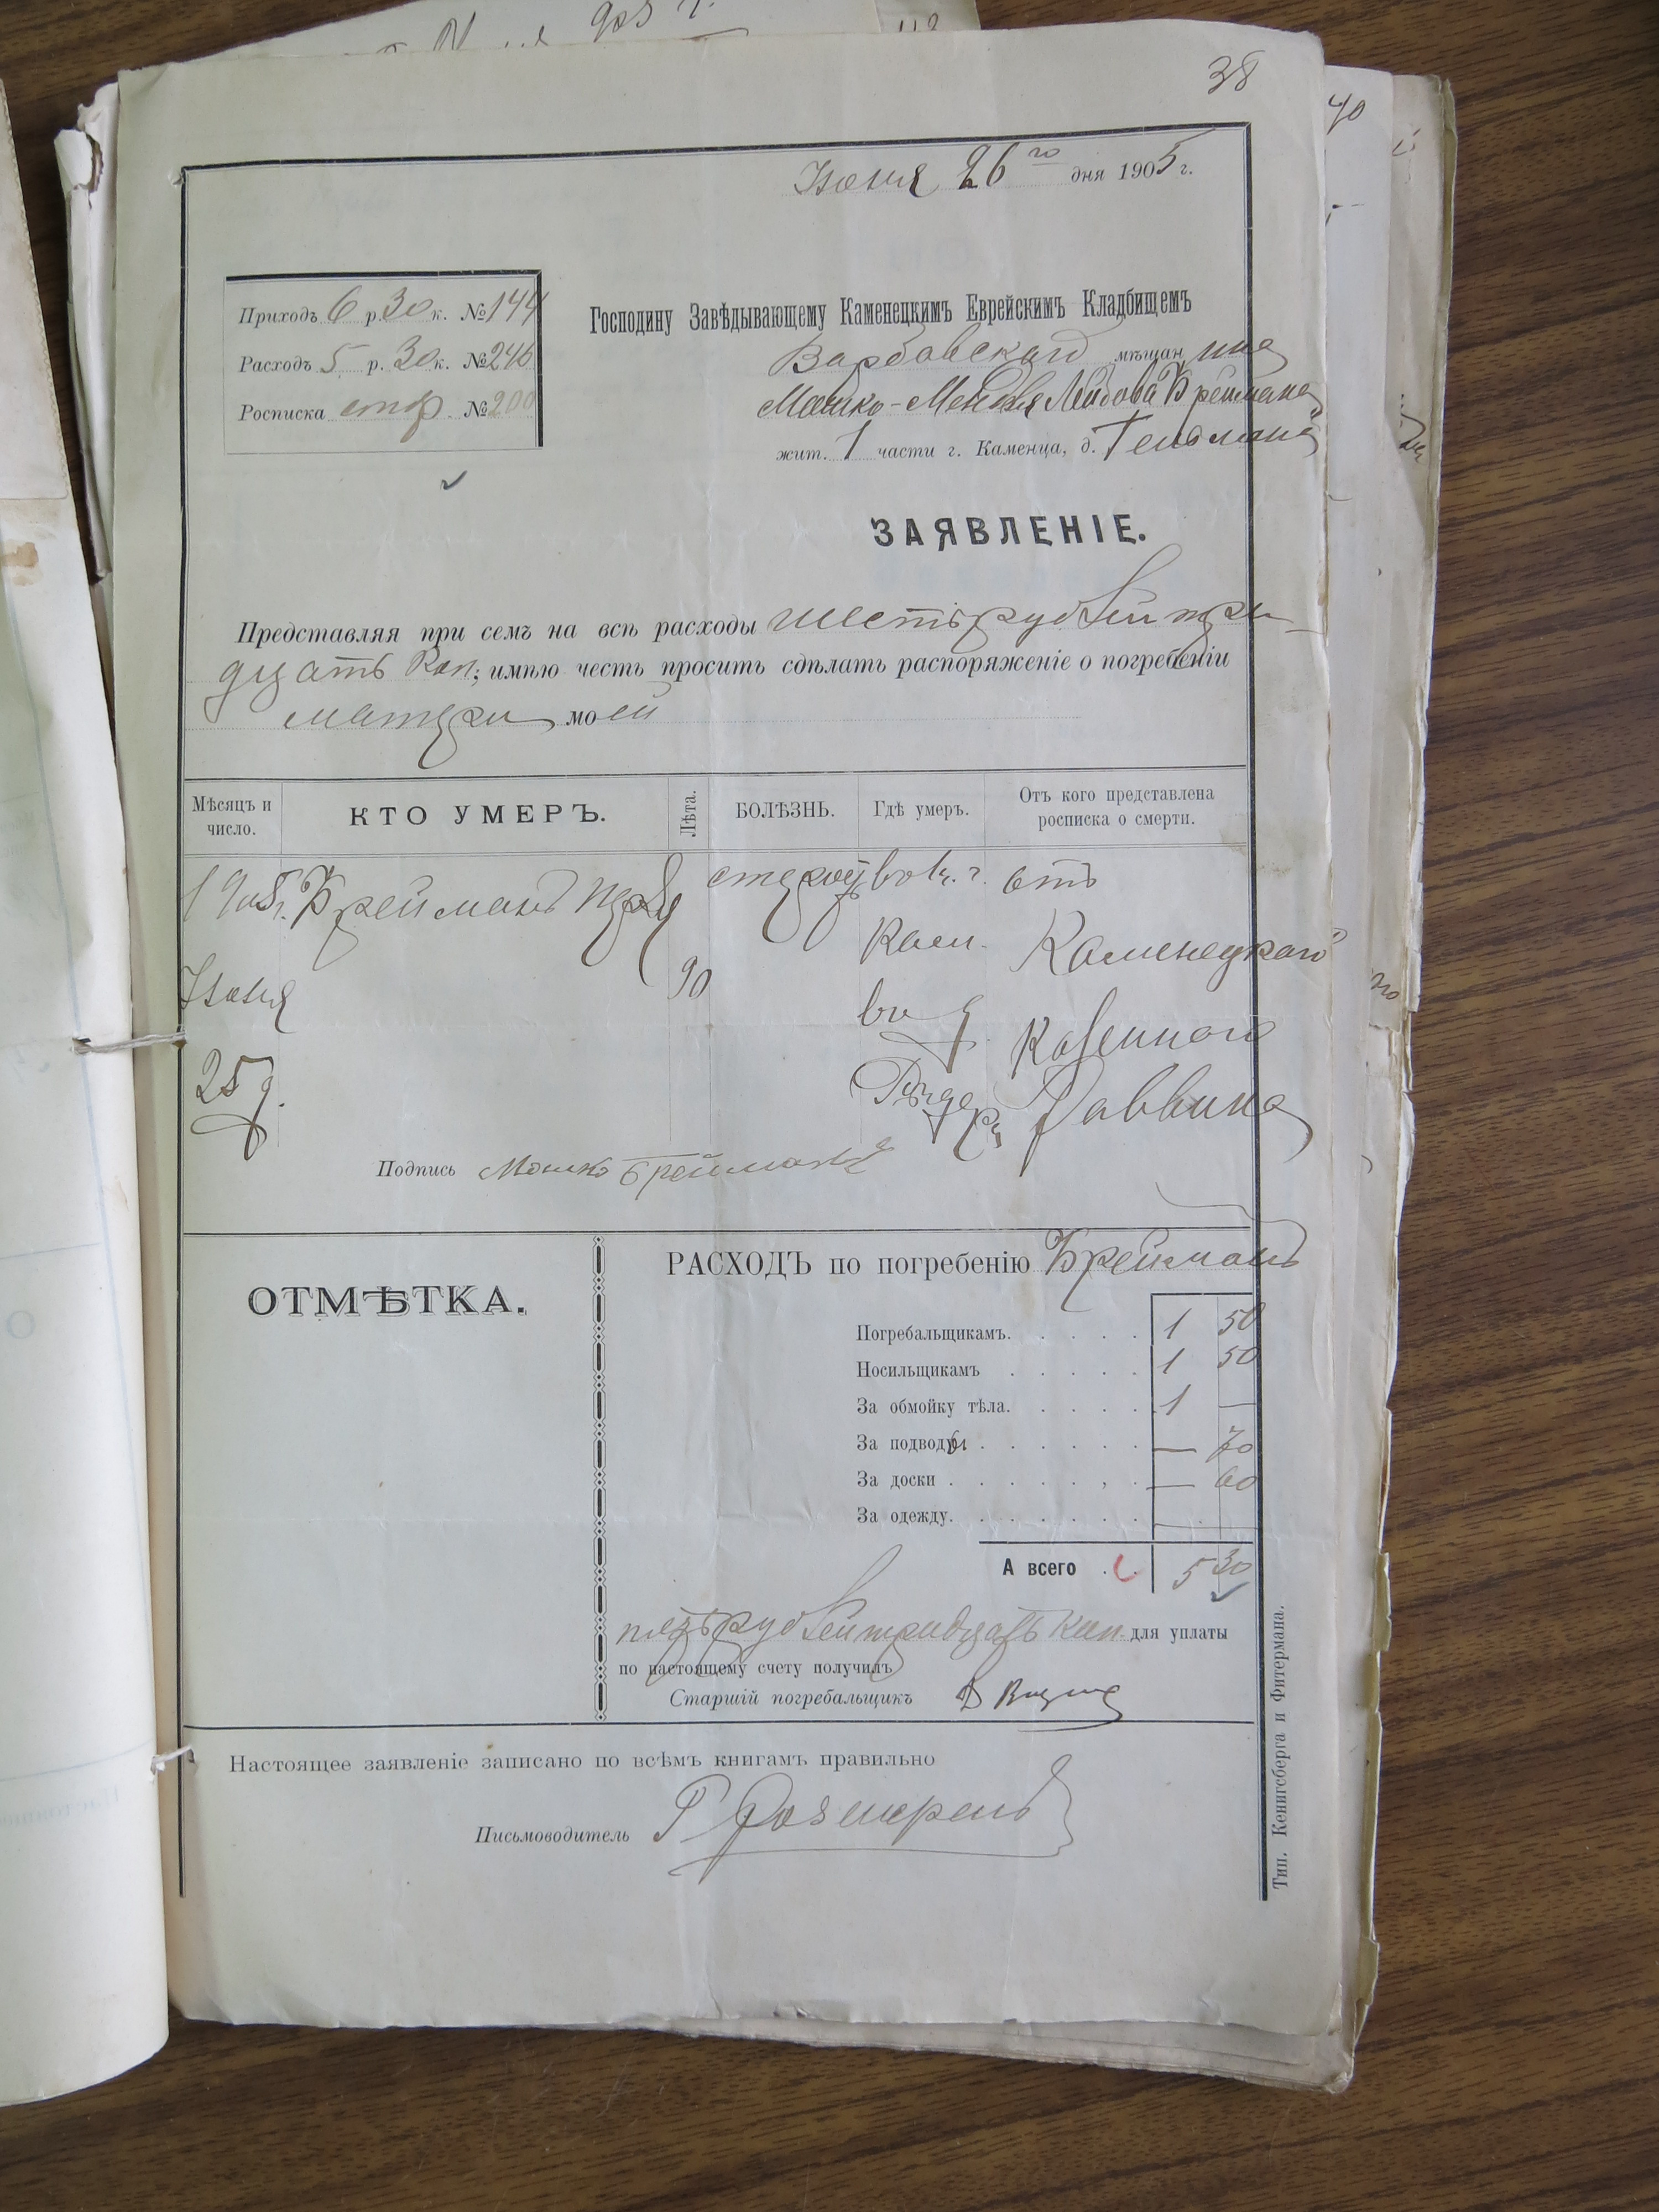 38
40
Іюня 26го дня 1905 г.
Приходъ 6 р. 30 к. №144
Расходъ 5 р. 30 к. №246
Росписка стр. №200
Господину Завѣдывающему Каменецкимъ Еврейскимъ Кладбищемъ
мѣщанина
Мошко-Менделя Лейбова Бреймана
жит. 1 части г. Каменца, д. Гельмана
ЗАЯВЛЕНІЕ.
Представляя при семъ на всѣ расходы шесть рублей три-
дцать коп.; имѣю честь просить сдѣлать распоряженіе о погребеніи
матери моей
Мѣсяцъ и число.
КТО УМЕРЪ.
Лѣта.
БОЛѢЗНЬ.
Гдѣ умеръ.
Отъ кого представлена росписка о смерти.
1905г. Брейманъ въ К. г. отъ
Кам. Каменецкаго
Іюня 90
Казеннаго
25 д.
Раввина
Подпись Мошко Брейманъ
ОТМѢТКА.
РАСХОДЪ по погребенію Брейманъ
Погребальщикамъ. 1 50
Носильщикамъ 1 50
За обмойку тѣла. 1 —
За подводы — 70
За доски — 60
За одежду. —
А всего 5 30
пять рублей тридцать коп. для уплаты
по настоящему счету получилъ
Старшій погребальщикъ
Настоящее заявленіе записано по всѣмъ книгамъ правильно
Письмоводитель
Тип. Кенигсберга и Фитермана.